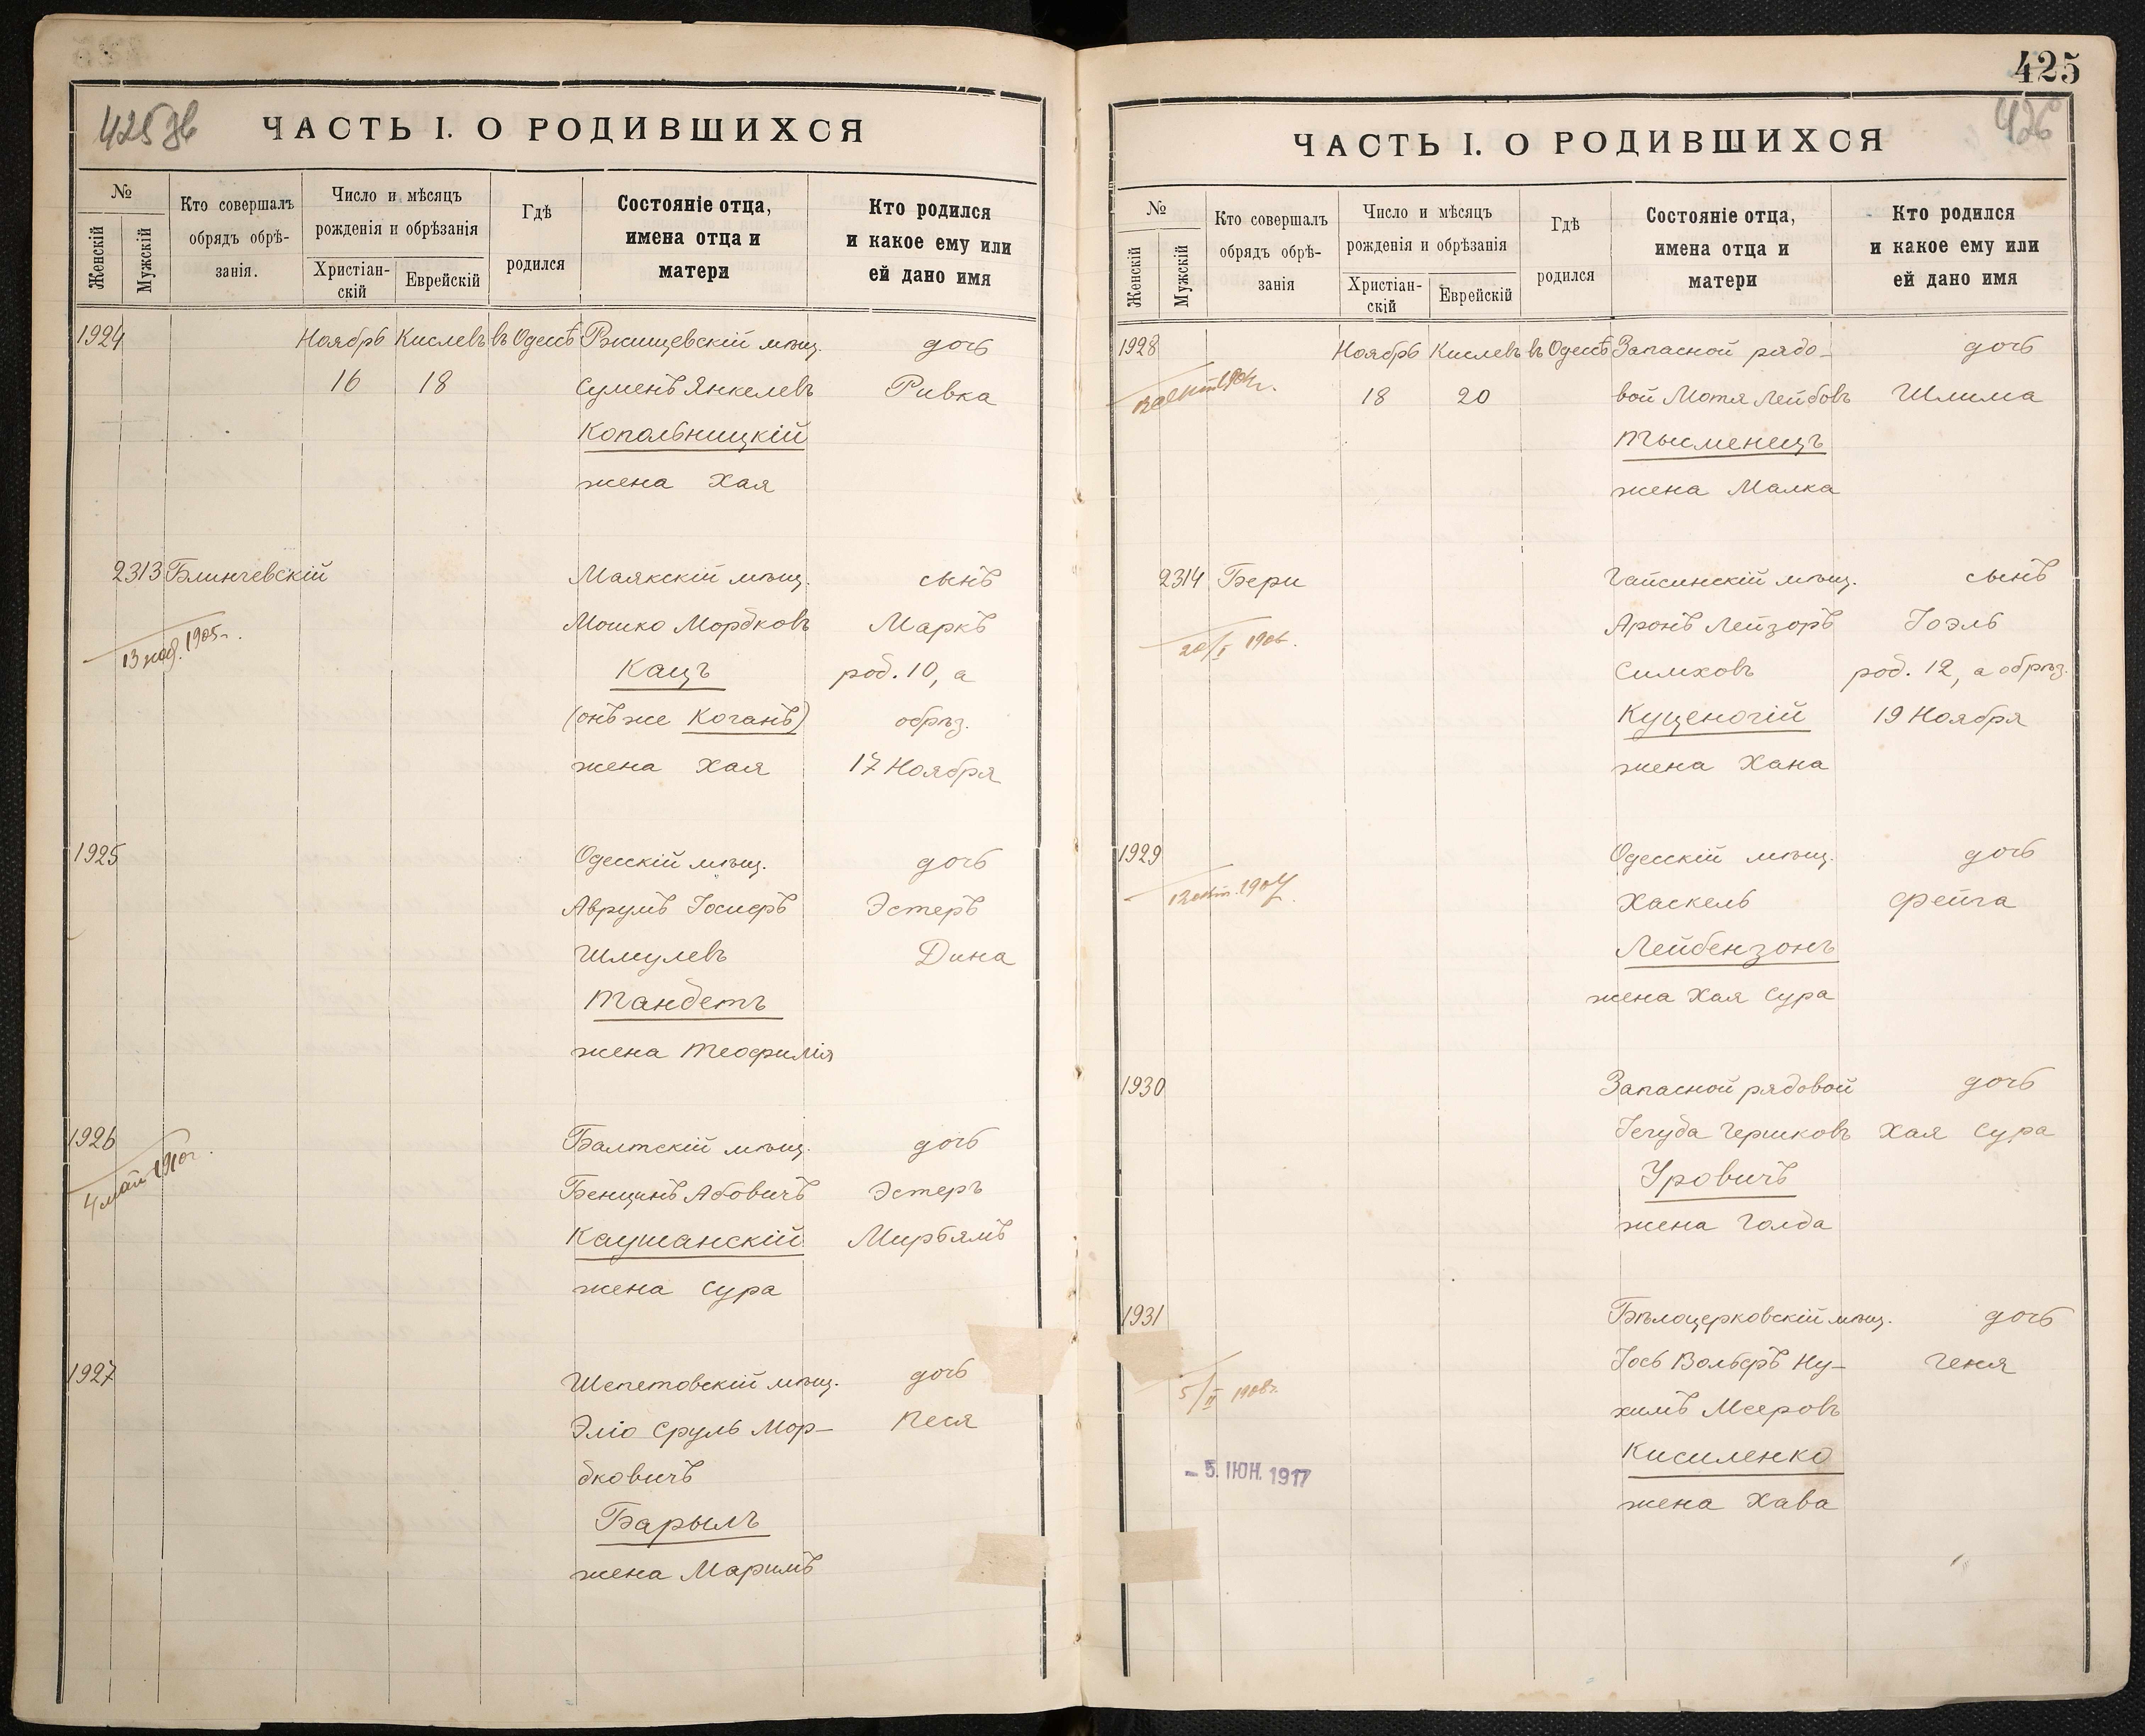 425 зв
ЧАСТЬ I. О РОДИВШИХСЯ
№
Женскій
Мужскій
Кто совершалъ
обрядъ обрѣ-
занія.
Число и мѣсяцъ
рожденія и обрѣзанія
Христіан-
скій
Еврейскій
Гдѣ
родился
Состояніе отца,
имена отца и
матери
Кто родился
и какое ему или
ей дано имя
1924 Ноябрь Кислевъ въ Одессѣ Ржищевскій мѣщ. дочь
16 18 Суменъ Янкелевъ Ривка
Копольницкій
жена Хая
2313 Блинчевскій Маякскій мѣщ. сынъ
Мошко Мордковъ Маркъ
13 мая 1905 г.
Кацъ род. 10, а
(онъ же Коганъ) обрѣз.
жена Хая 17 Ноября
1925 Одесскій мѣщ. дочь
Аврумъ Іосифъ Эстеръ
Шмулевъ Дина
Тандетъ
жена Теофилія
1926 Балтскій мѣщ. дочь
4 май 1910 г.
Бенціинъ Абовичъ Эстеръ
Каушанскій Мирьямъ
жена Сура
1927 Шепетовскій мѣщ. дочь
Эліо Сруль Мор- Песя
дковичъ
Барылъ
жена Маримъ
425
426
ЧАСТЬ I. О РОДИВШИХСЯ
№
Женскій
Мужскій
Кто совершалъ
обрядъ обрѣ-
занія
Число и мѣсяцъ
рожденія и обрѣзанія
Христіан-
скій
Еврейскій
Гдѣ
родился
Состояніе отца,
имена отца и
матери
Кто родился
и какое ему или
ей дано имя
1928 Ноябрь Кислевъ въ Одессѣ Запасной рядо- дочь
18 20 вой Мотя Лейбовъ Шлима
Тысменецъ
жена Малка
2314 Бери Гайсинскій мѣщ. сынъ
Аронъ Лейзоръ Іоэль
20/I 1906.
Симховъ род. 12, а обрѣз.
Куценогій 19 Ноября
жена Хана
1929 Одесскій мѣщ. дочь
Хаскель Фейга
Лейбензонъ
жена Хая Сура
1930 Запасной рядовой дочь
Іегуда Гершковъ Хая Сура
Уровичъ
жена Голда
1931 Бѣлоцерковскій мѣщ. дочь
Іось Вольфъ Ну- Геня
5/II 1908 г.
химъ Мееровъ
Кисиленко
– 5. ІЮН. 1917
жена Хава